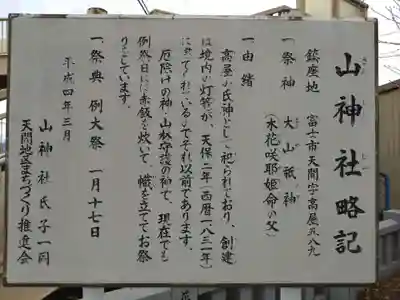 山神社略記
鎮座地　富士市天間字高屋五八九
一 祭神　大山祇神
（木花咲耶姫命の父）
一 由緒
高屋の氏神として祀られており、創建
は境内の灯篭が、天保二年（西暦一八三一年）
に並べてれているのでそれ以前であります。
厄除けの神・山林守護の神で、現在でも
例祭日には赤飯を炊いて、幟を立ててお祭
りをしています。
一 祭典　例大祭　一月十七日
平成四年三月
山神社氏子一同
天間地区まちづくり推進会